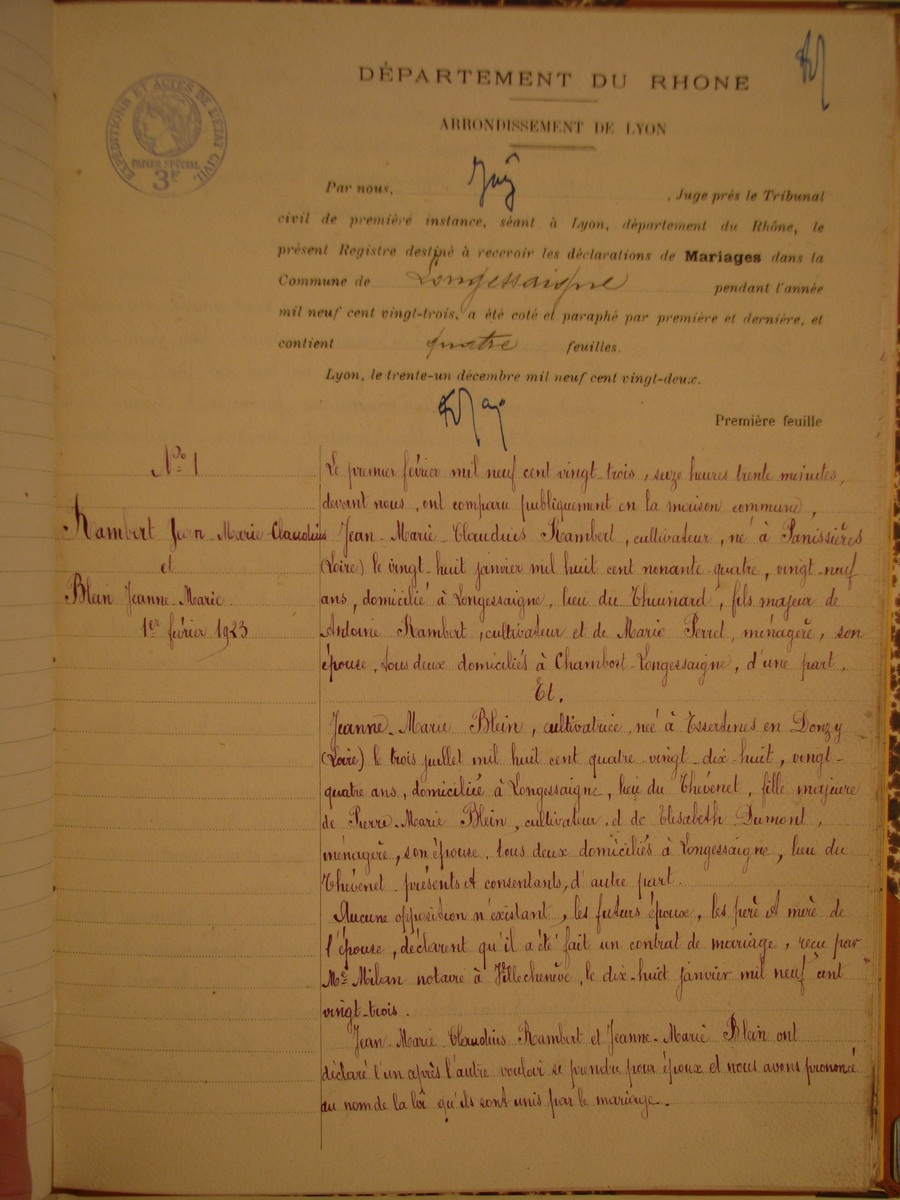 DÉPARTEMENT DU RHONE
ARRONDISSEMENT DE LYON
EXPÉDITIONS ET ACTES DE L'ÉTAT CIVIL
PAPIER SPÉCIAL
3F
Par nous, , Juge près le Tribunal
civil de première instance, séant à Lyon, département du Rhône, le
présent Registre destiné à recevoir les déclarations de Mariages dans la
Commune de Longessaigne pendant l'année
mil neuf cent vingt-trois, a été coté et paraphé par première et dernière, et
contient quatre feuilles.
Lyon, le trente-un décembre mil neuf cent vingt-deux.
Première feuille
N° 1
Rambert Jean-Marie-Claudius
et
Blein Jeanne-Marie
1er février 1923
Le premier février mil neuf cent vingt-trois, seize heures trente minutes,
devant nous, ont comparu publiquement en la maison commune,
Jean-Marie Claudius Rambert, cultivateur, né à Panissières
(Loire) le vingt-huit janvier mil huit cent nonante-quatre, vingt-neuf
ans, domicilié à Longessaigne, lieu du Thuinard, fils majeur de
Antoine Rambert, cultivateur et de Marie Perret, ménagère, son
épouse, tous deux domiciliés à Chambost-Longessaigne, d'une part,
Et,
Jeanne-Marie Blein, cultivatrice, née à Essertines en Donzy
(Loire) le trois juillet mil huit cent quatre-vingt-dix huit, vingt-
quatre ans, domiciliée à Longessaigne, lieu du Thévenet, fille majeure
de Pierre-Marie Blein, cultivateur, et de Elisabeth Dumont,
ménagère, son épouse, tous deux domiciliés à Longessaigne, lieu du
Thévenet présents et consentants, d'autre part.
Aucune opposition n'existant, les futurs époux, les père et mère de
l'épouse, déclarent qu'il a été fait un contrat de mariage, reçu par
Me Milan notaire à Villechenève, le dix-huit janvier mil neuf cent
vingt-trois.
Jean-Marie Claudius Rambert et Jeanne-Marie Blein ont
déclaré l'un après l'autre vouloir se prendre pour époux et nous avons prononcé
au nom de la loi qu'ils sont unis par le mariage.